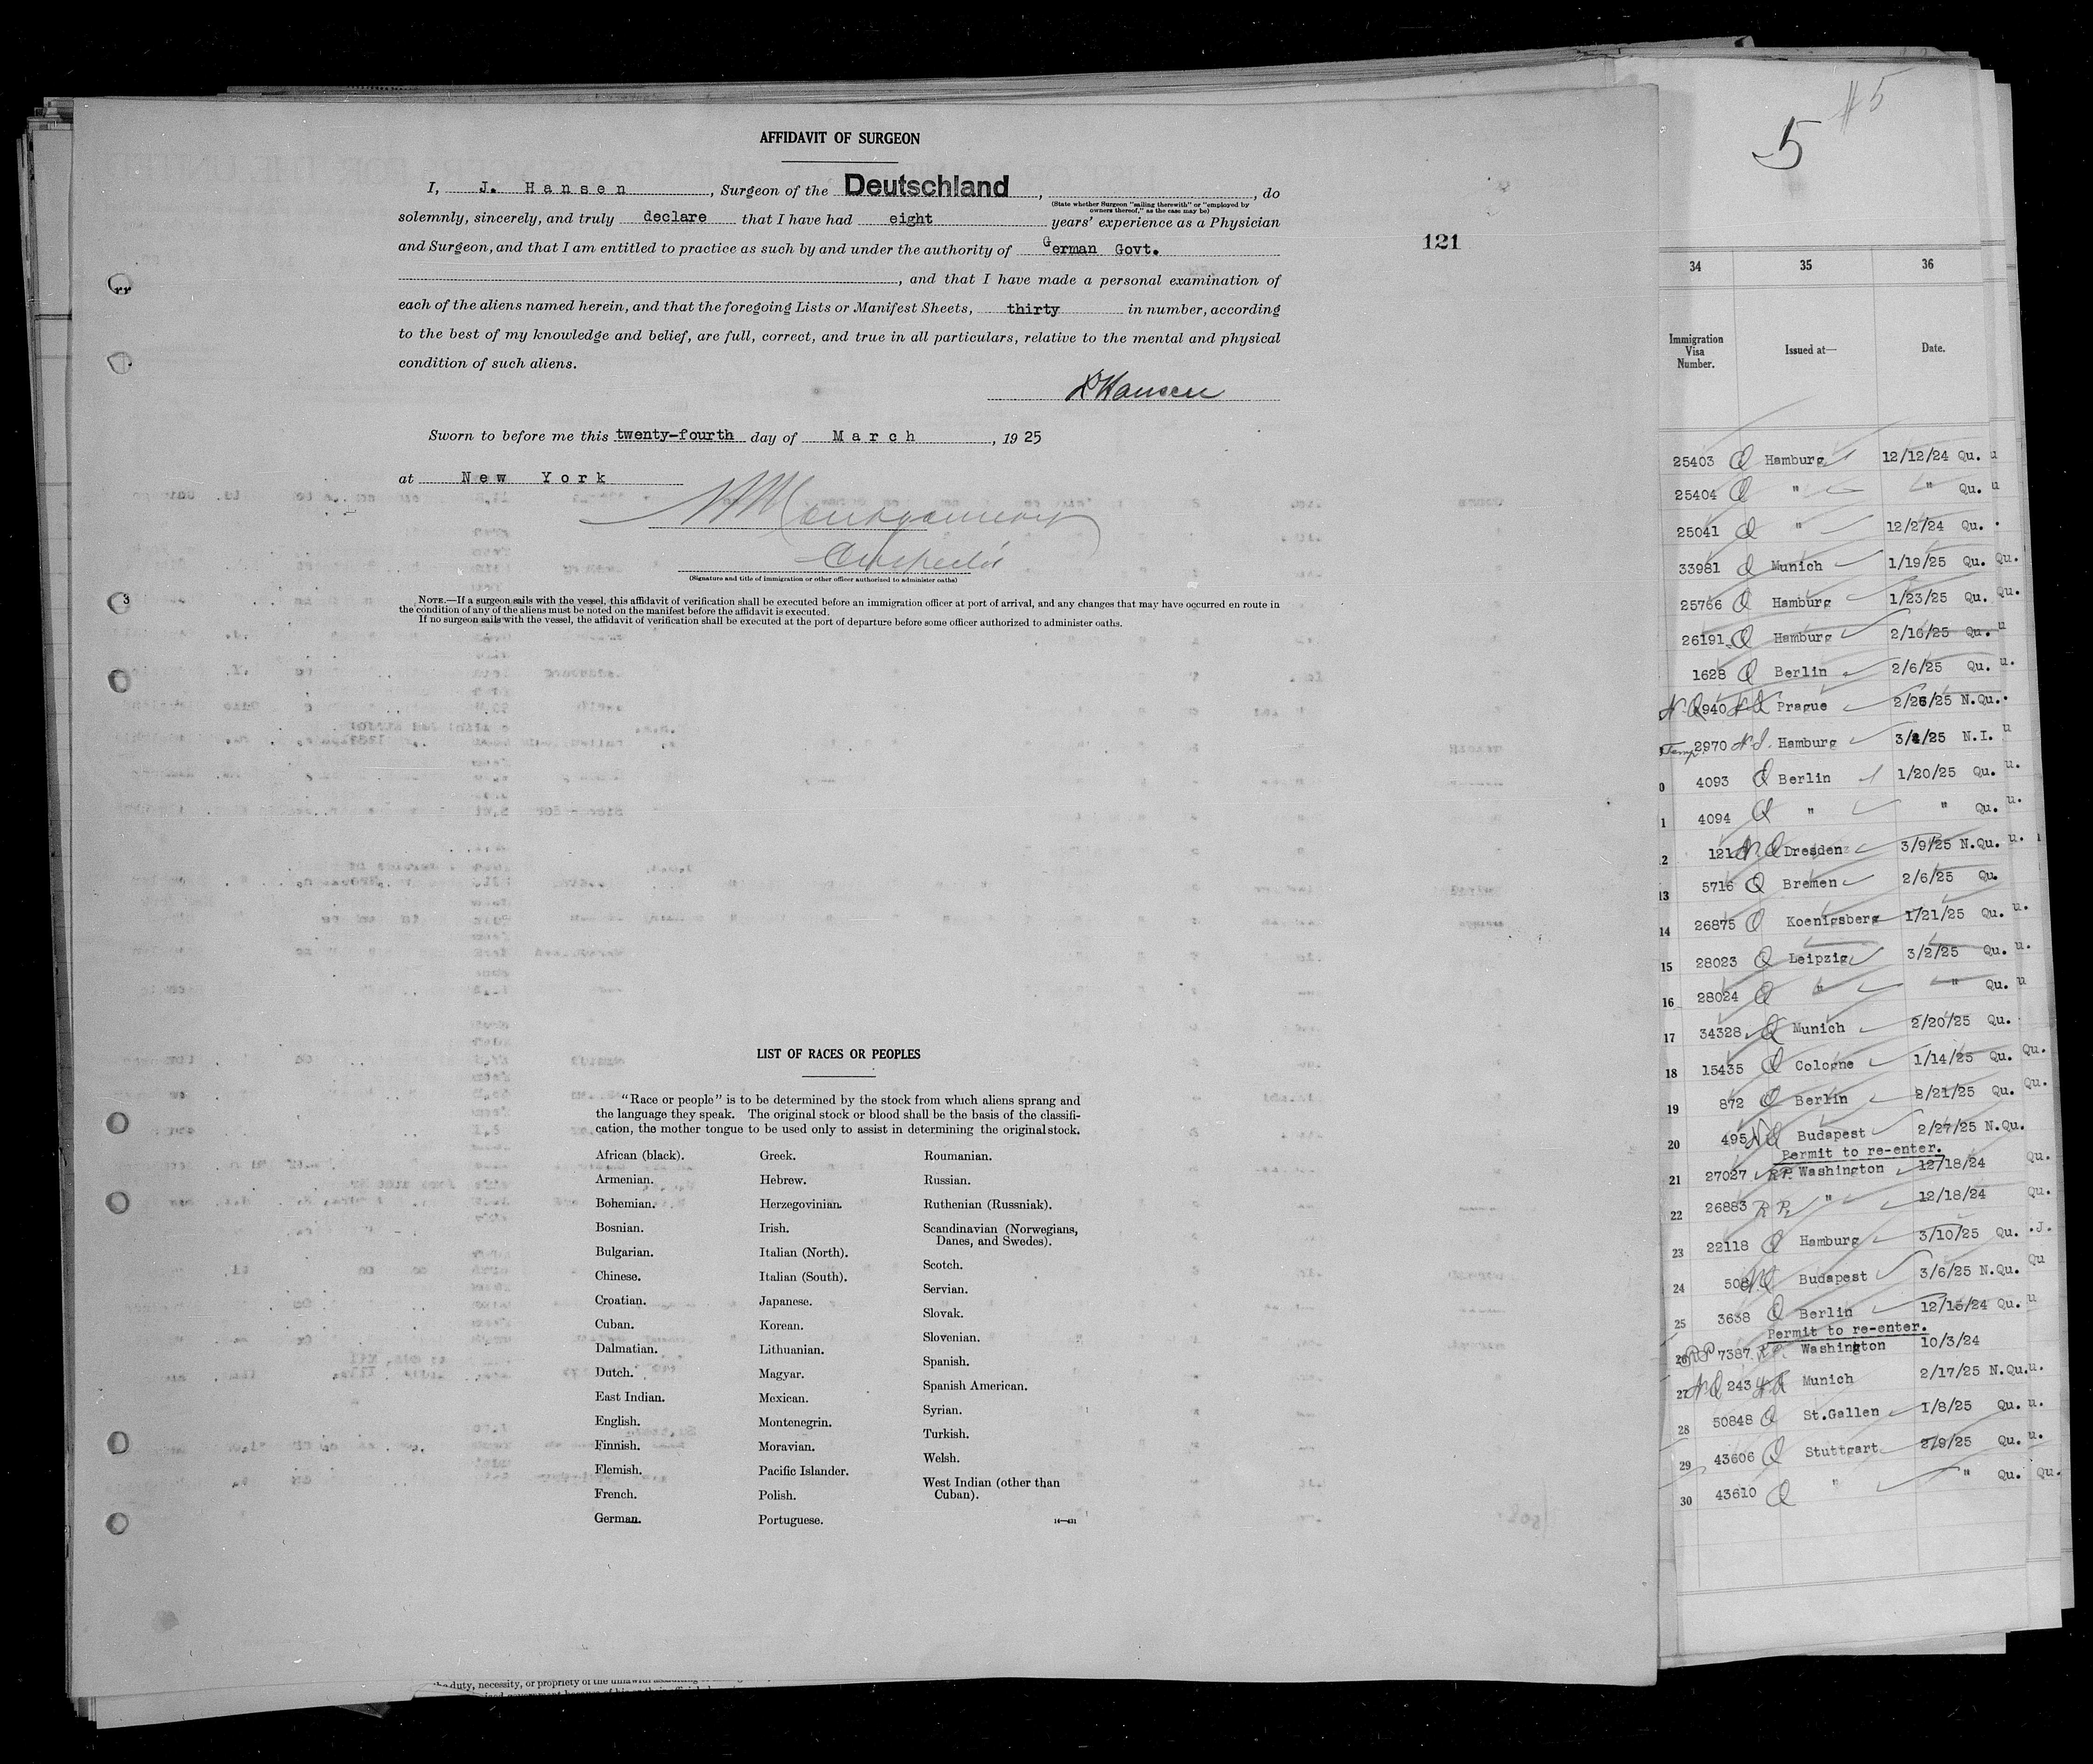 AFFIDAVIT OF SURGEON
I, J. Hansen, Surgeon of the Deutschland, , do
(State whether Surgeon "sailing therewith" or "employed by
owners thereof," as the case may be)
solemnly, sincerely, and truly declare that I have had eight years' experience as a Physician
and Surgeon, and that I am entitled to practice as such by and under the authority of German Govt.
, and that I have made a personal examination of
each of the aliens named herein, and that the foregoing Lists or Manifest Sheets, thirty in number, according
to the best of my knowledge and belief, are full, correct, and true in all particulars, relative to the mental and physical
condition of such aliens.
Hansen
Sworn to before me this twenty-fourth day of March, 1925
at New York
(Signature and title of immigration or other officer authorized to administer oaths)
NOTE.—If a surgeon sails with the vessel, this affidavit of verification shall be executed before an immigration officer at port of arrival, and any changes that may have occurred en route in
the condition of any of the aliens must be noted on the manifest before the affidavit is executed.
If no surgeon sails with the vessel, the affidavit of verification shall be executed at the port of departure before some officer authorized to administer oaths.
121
LIST OF RACES OR PEOPLES
"Race or people" is to be determined by the stock from which aliens sprang and
the language they speak. The original stock or blood shall be the basis of the classifi-
cation, the mother tongue to be used only to assist in determining the original stock.
African (black).
Armenian.
Bohemian.
Bosnian.
Bulgarian.
Chinese.
Croatian.
Cuban.
Dalmatian.
Dutch.
East Indian.
English.
Finnish.
Flemish.
French.
German.
Greek.
Hebrew.
Herzegovinian.
Irish.
Italian (North).
Italian (South).
Japanese.
Korean.
Lithuanian.
Magyar.
Mexican.
Montenegrin.
Moravian.
Pacific Islander.
Polish.
Portuguese.
Roumanian.
Russian.
Ruthenian (Russniak).
Scandinavian (Norwegians,
Danes, and Swedes).
Scotch.
Servian.
Slovak.
Slovenian.
Spanish.
Spanish American.
Syrian.
Turkish.
Welsh.
West Indian (other than
Cuban).
14—431
#5
5
34 35 36
Immigration
Visa
Number.
Issued at—
Date.
25403 Q Hamburg 12/12/24 Qu.
25404 Q " " Qu.
25041 Q " 12/2/24 Qu.
33981 Q Munich 1/19/25 Qu. Qu.
25766 Q Hamburg 1/23/25 Qu. Qu.
26191 Q Hamburg 2/10/25 Qu.
1628 Q Berlin 2/6/25 Qu.
940 Prague 2/26/25 N.Qu.
Temp. 2970 N.I. Hamburg 3/4/25 N.I.
4093 Q Berlin 1/20/25 Qu.
4094 Q " " Qu.
121 N.Q Dresden 3/9/25 N.Qu.
13 5716 Q Bremen 2/6/25 Qu.
14 26875 Q Koenigsberg 1/21/25 Qu.
15 28023 Q Leipzig 3/2/25 Qu.
16 28024 Q " " Qu.
17 34328 Q Munich 2/20/25 Qu.
18 15435 Q Cologne 1/14/25 Qu. Qu.
19 872 Q Berlin 2/21/25 Qu. Qu.
20 495 NQ Budapest 2/27/25 N.Qu.
Permit to re-enter.
21 27027 R.P. Washington 12/18/24 Qu.
22 26883 R.P. " 12/18/24 Qu.
23 22118 Q Hamburg 3/10/25 Qu.
24 508 N.Q Budapest 3/6/25 N.Qu. Qu
25 3638 Q Berlin 12/15/24 Qu.
Permit to re-enter.
26 RP 7387 Washington 10/3/24
27 NQ 243 Munich 2/17/25 N.Qu.
28 50848 Q St.Gallen 1/8/25 Qu.
29 43606 Q Stuttgart 2/9/25 Qu.
30 43610 Q " " Qu. Qu.
duty, necessity, or propriety of the unlawful